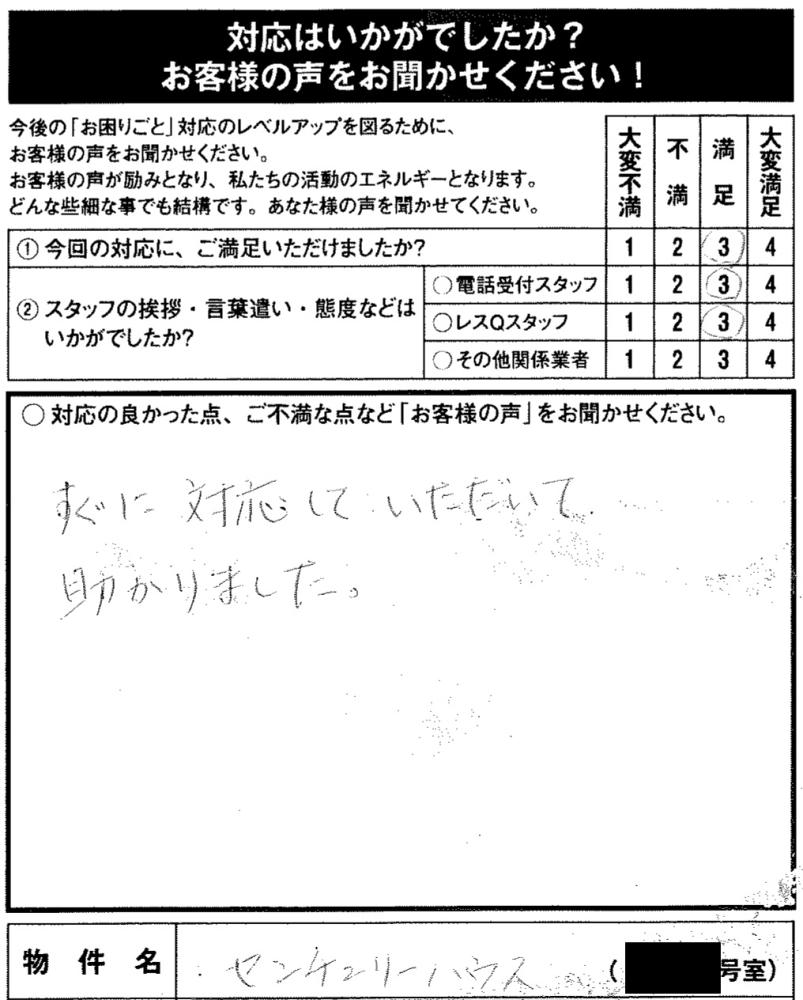 対応はいかがでしたか?
お客様の声をお聞かせください!
今後の「お困りごと」対応のレベルアップを図るために、
お客様の声をお聞かせください。
お客様の声が励みとなり、私たちの活動のエネルギーとなります。
どんな些細な事でも結構です。あなた様の声を聞かせてください。
大変不満 不満 満足 大変満足
① 今回の対応に、ご満足いただけましたか? 1 2 3 4
② スタッフの挨拶・言葉遣い・態度などは
いかがでしたか?
○電話受付スタッフ 1 2 3 4
○レスQスタッフ 1 2 3 4
○その他関係業者 1 2 3 4
○ 対応の良かった点、ご不満な点など「お客様の声」をお聞かせください。
すぐに対応していただいて
助かりました。
物件名 センチュリーハウス ( 号室)